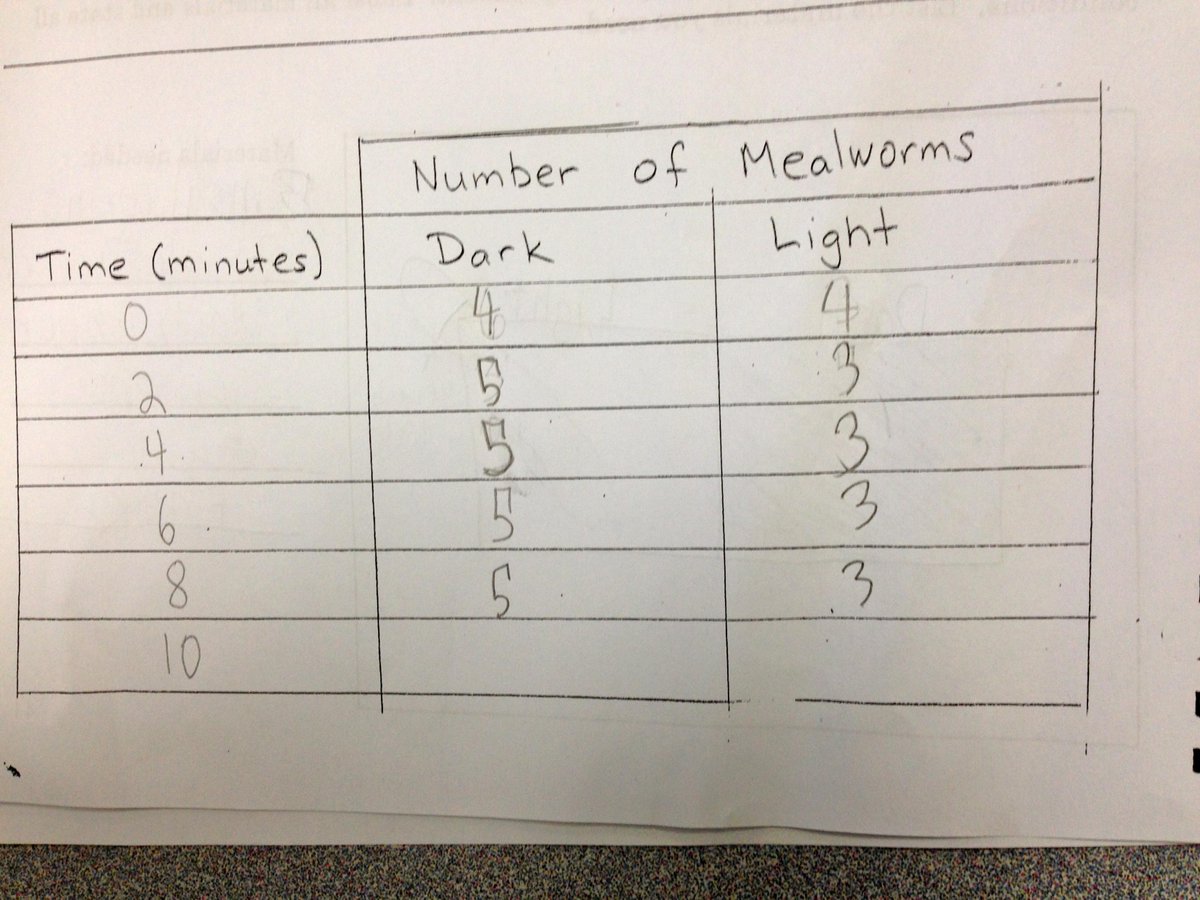 Number of Mealworms
Time (minutes) Dark Light
0 4 4
2 5 3
4 5 3
6 5 3
8 5 3
10